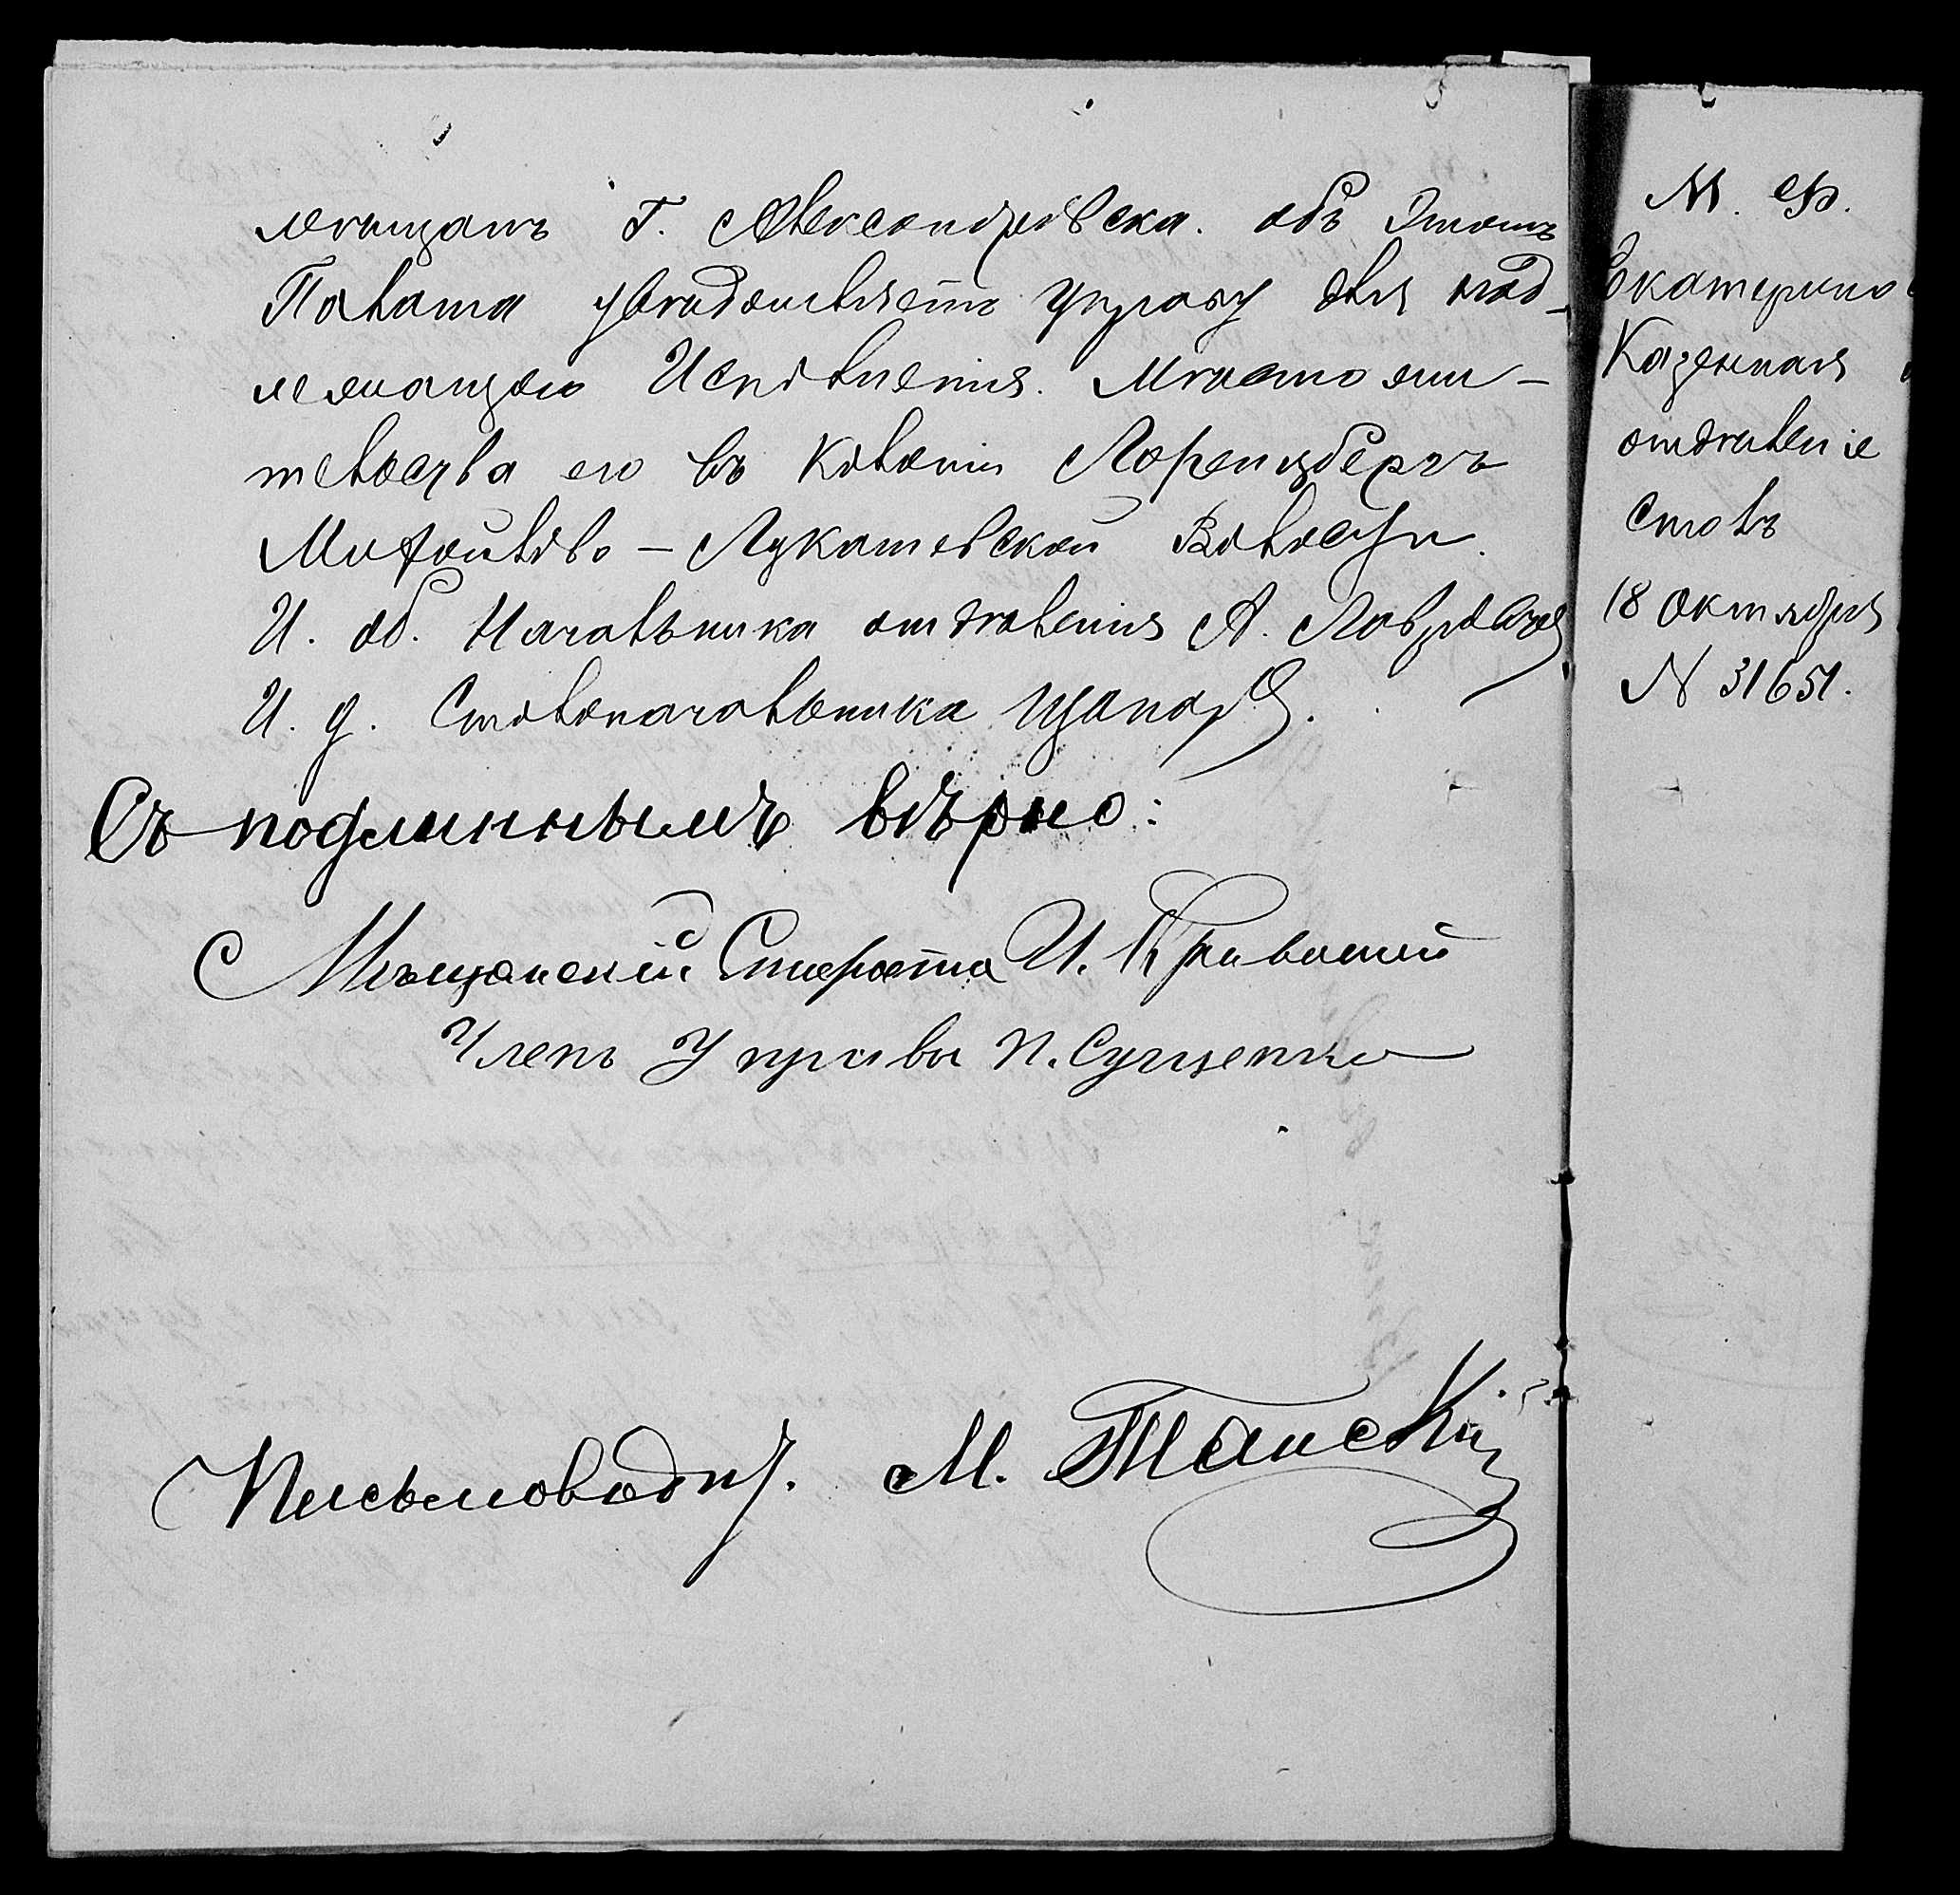 мѣщанъ г. Александровска. объ Этомъ
Палата увѣдомляетъ Управу для над-
лежащаго Исполненія. Мѣсто жи-
тельства его въ Колоніи Лоренцбергъ
Михайлово-Лукашевской Волости.
И. об. Начальника отдѣленія А.
И. д. Столоначальника Цапарь.
Съ подлиннымъ вѣрно:
Мѣщанскій Староста И.
Членъ Управы П. Сущенко
Письмоводит. М. Танскій
М. Ф.
Екатерино
Казенная
отдѣленіе
Столъ
18 Октября
N 31651.